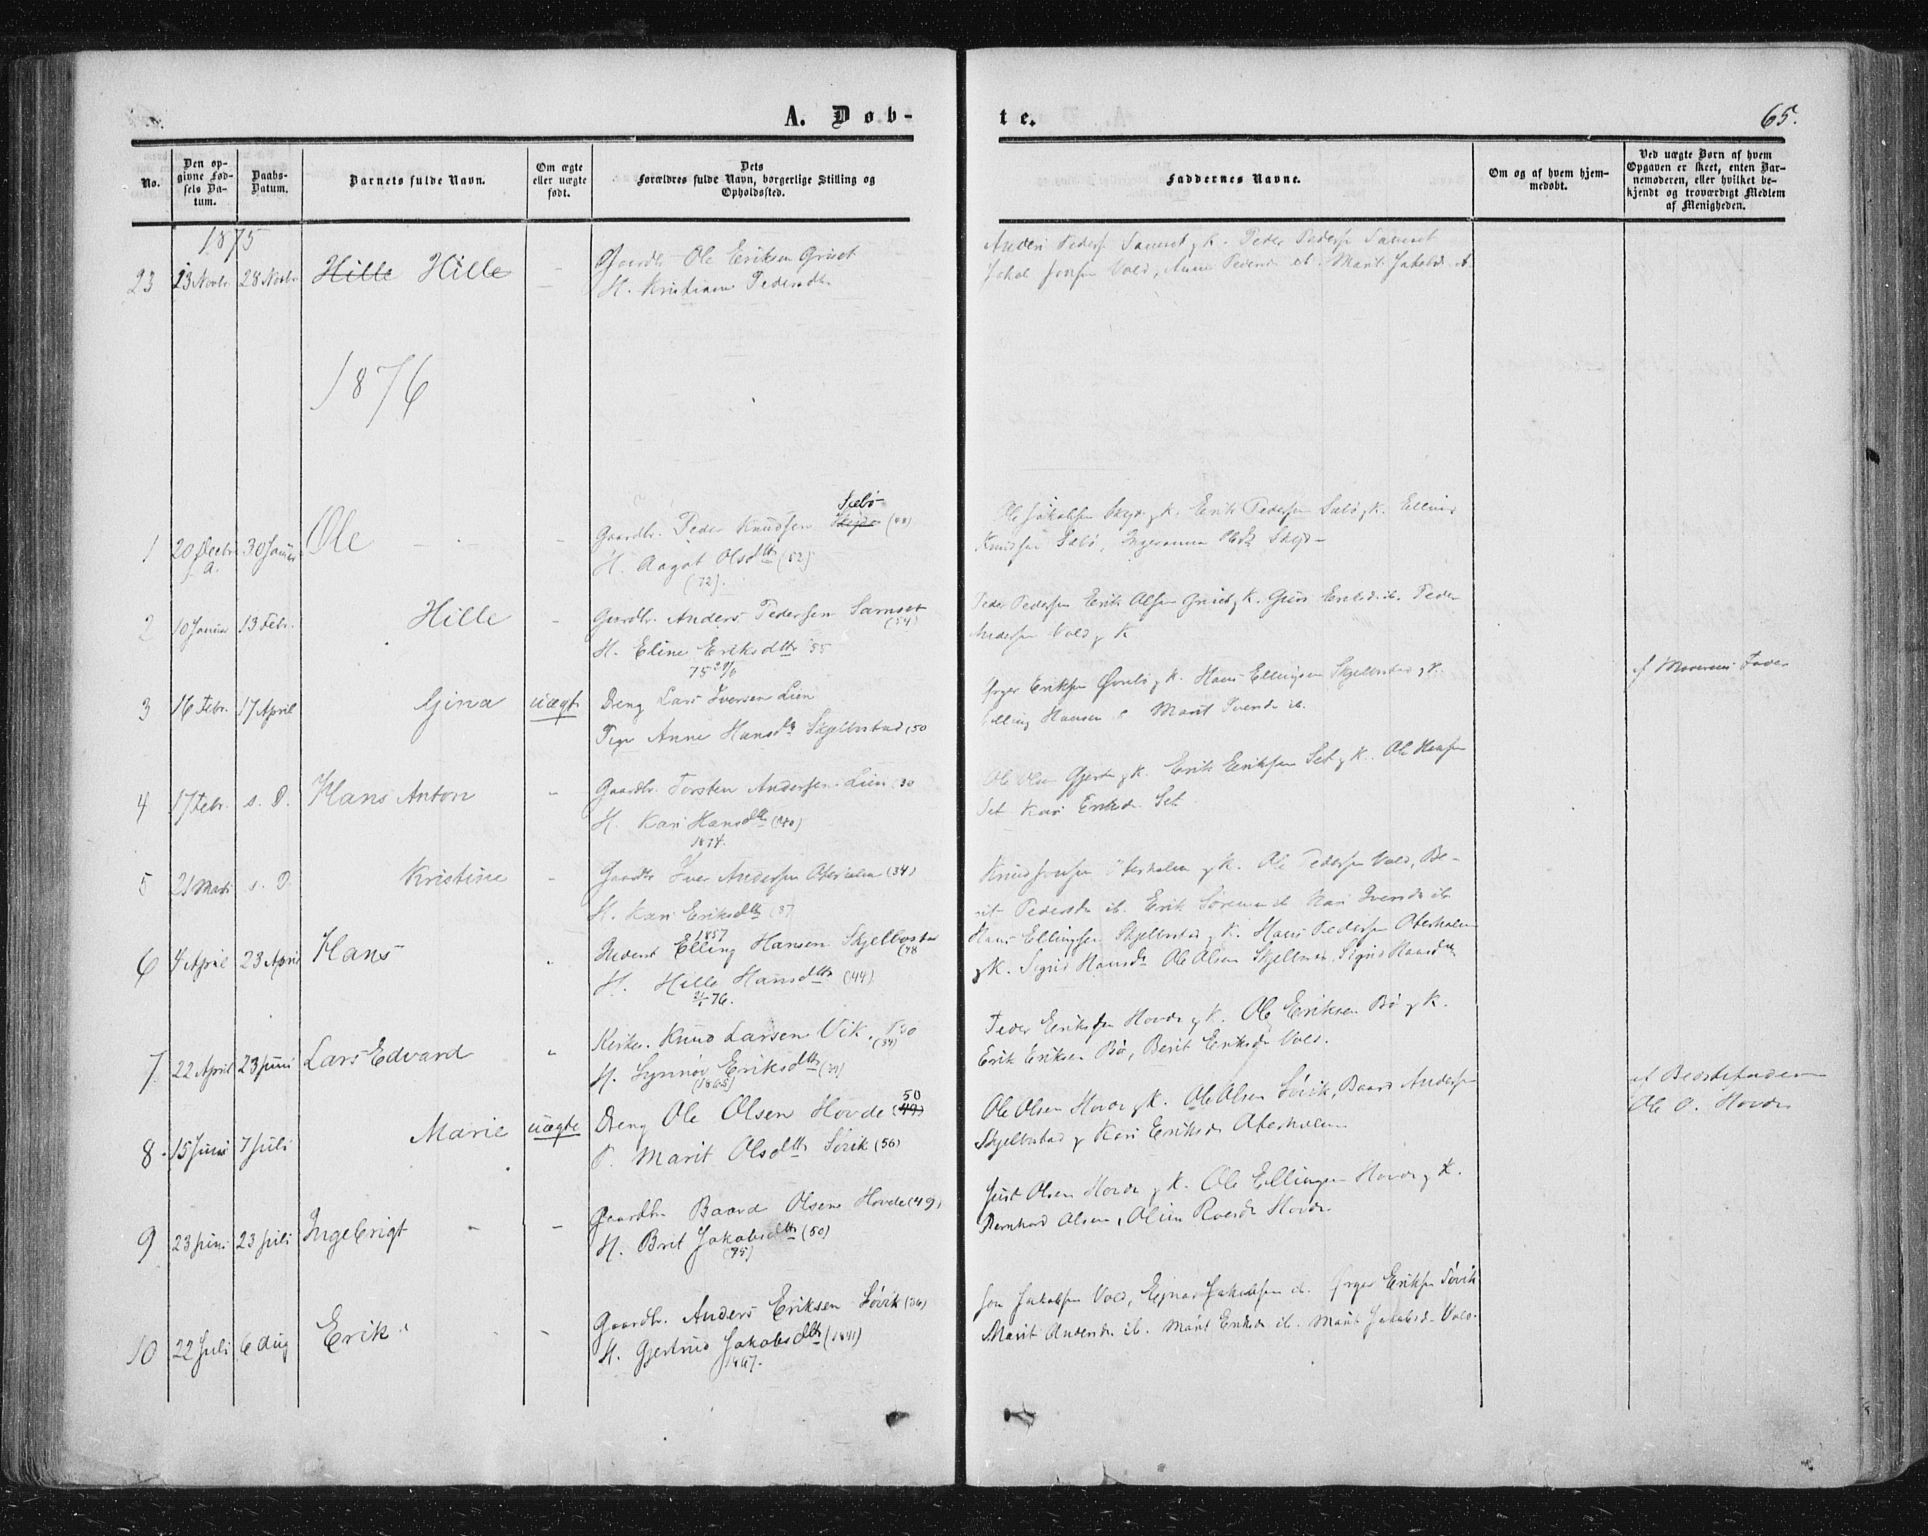 A. Døb-
te.
65.
No.
Den op-
givne Fød-
sels Da-
tum.
Daabs-
Datum.
Barnets fulde Navn.
Om ægte
eller uægte
født.
Dets
Forældres fulde Navn, borgerlige Stilling og
Opholdssted.
Faddernes Navne.
Om og af hvem hjem-
medøbt.
Ved uægte Børn af hvem
Opgaven er skeet, enten Bar-
nemoderen, eller hvilket be-
kjendt og troværdigt Medlem
af Menigheden.
1875
23 13 Novbr 28 Novbr Hille Hille - Gaardbr. Ole Eriksen Griset
H. Kristiane Pedersdtr
Anders Peders. Samset g K. Peder Peders. Samset
Jonsen Vold, Anne Pedersd ib. Marit Jakobsd.
1876
Sæbø
1 20 Decbr 30 Januar Ole - Gaardbr. Peder Knudsen Skejde (48)
f. A. H. Aagot Olsdtr (52)
(72).
Ole Jakobsen Skejd g K. Erik Pedersen Sæbø g K. Elling
Knudsen Sæbø, Skejd
2 10 Januar 13 Febr. Hille - Gaardbr. Anders Pedersen Samset
(54)
H. Eline Eriksdtr 55
75
Peder Pedersen Erik Olsen Griset g K. Eriksd. ib. Peder
Andersen Vold g K
3 16 Febr. 17 April Gina uægt. Dreng Lars Iversen Lien
Pige Anne Hansdtr Skjelbostad (50
Eriksen g K. Hans Ellingsen Skjelbostad g K.
Elling Hansen Marit Iversd ib.
af Moderens Fader
4 17 Febr. s. D. Hans Anton - Gaardbr. Torsten Andersen Lien (30
H. Kari Hansdtr (40)
1874.
Ole Olsen Gjerde g K. Erik Eriksen Set g K. Ole Hansen
Set Kari Eriksd. Set
5 21 Marts s. D. Kristine - Gaardbr Iver Andersen Oterholm (34)
H. Kari Eriksdtr (37
1857
Knud Jonsen Oterholm g K. Ole Pedersen Vold, Be-
rit Pedersd ib. Erik Kari Iversd ib
6 4 April 23 April Hans - Inderst Elling Hansen Skjelbostad
(48
H. Hille Hansdtr (44)
2/1 76.
Hans Ellingsen Skjelbostad g K. Hans Pedersen Oterholm
g K. Sigrid Hansd. Ole Olsen Sigrid Hansd
7 22 April 23 Juni Lars Edvard - Knud Larsen Vik
(34)
H. Synnøv Eriksdtr (39)
(1865)
Peder Eriksen Hovde g K. Ole Eriksen Bø g K.
Erik Eriksen Bø, Berit Eriksd Vold.
50
8 15 Juni 7 Juli Marie uægte Dreng Ole Olsen Hovde (49)
P. Marit Olsdtr Søvik (56)
Ole Olsen Hovde g K. Ole Olsen Søvik, Baard Andersen
Skjelbostad g Kari Eriksd. Oterholm
af Bedstefaderen
Ole O. Hovde
9 23 Juni 23 Juli Ingebrigt - Gaardbr Baard Olsen Hovde (49)
H. Brit Jakobsdtr (50)
(75)
Just Olsen Hovde g K. Ole Ellingsen Hovde g K.
Bernhard Olsen, Hovde
10 22 Juli 6 Aug Erik - Gaardbr. Anders Eriksen Søvik (36)
H. Gjertrud Jakobsdtr (1841)
1867.
Jon Jakobsen Vold, Ejnar Jakobsen Eriksen Søvik
Marit Andersd. ib. Marit Eriksd. ib. Marit Jakobsd. Vold.